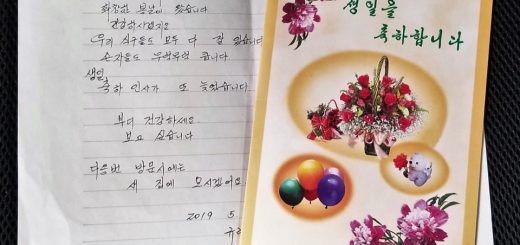 화창한 봄날이 왔습니다
건강하시겠지요
우리 식구들도 모두 다 잘 있습니다
손자들도 무럭무럭 큽니다
생일
축하 인사가 또 늦었습니다
부디 건강하세요
보고 싶습니다
다음번 방문시에는
새 집에 모시겠어요
2019 5
생일을
축하합니다